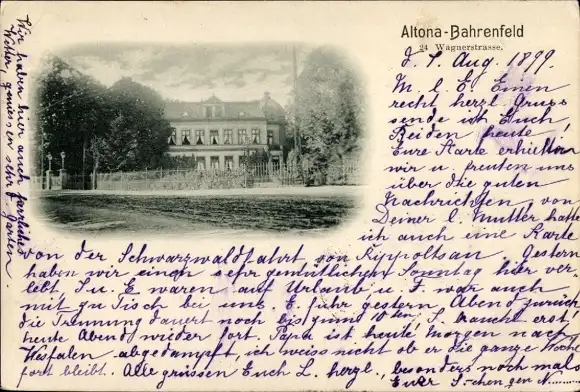 Altona-Bahrenfeld
24 Wagnerstrasse.
d. 7. Aug. 1899.
M. l. E. Einen
recht herzl. Gruss
sende ich Euch
Beiden heute!
Eure Karte erhielten
wir u. freuten uns
über die guten
Nachrichten, von
Deiner l. Mutter hatte
ich auch eine Karte
von der Schwarzwaldfahrt, von Rippoltsau. Gestern
haben wir einen sehr gemütlichen Sonntag hier ver-
lebt S. u. E. waren auf Urlaub u. F. war auch
mit zu Tisch bei uns E. fuhr gestern Abend zurück
die Trennung dauert noch bis zum 10ten, S. braucht erst
heute Abend wieder fort. Papa ist heute Morgen nach
Westfalen abgedampft, ich weiss nicht ob er die ganze Woche
fort bleibt. Alle grüssen Euch L. herzl., besonders noch mal
Eure
Wir haben hier auch herrliches
Wetter, geniessen sehr d. Garten.